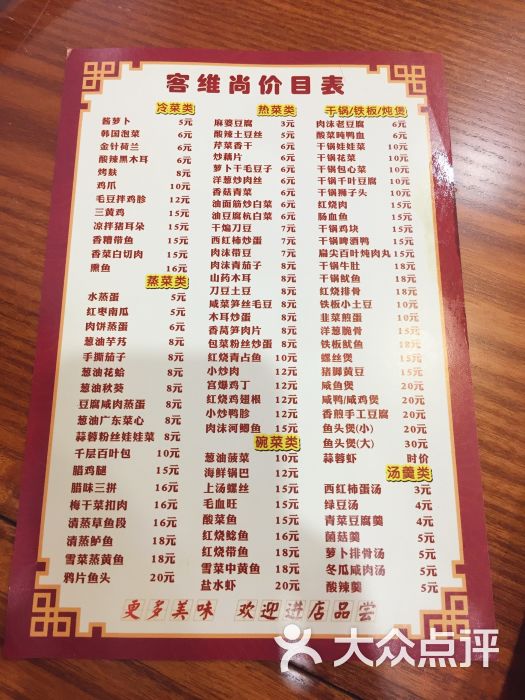 客维尚价目表
冷菜类
酱萝卜 5元
韩国泡菜 6元
金针荷兰 6元
酸辣黑木耳 6元
烤麸 8元
鸡爪 10元
毛豆拌鸡胗 12元
三黄鸡 15元
凉拌猪耳朵 15元
香糟带鱼 15元
香菜白切肉 15元
熏鱼 16元
蒸菜类
水蒸蛋 5元
红枣南瓜 5元
肉饼蒸蛋 6元
葱油芋艿 8元
手撕茄子 8元
葱油花蛤 8元
葱油秋葵 8元
豆腐咸肉蒸蛋 8元
葱油广东菜心 8元
蒜蓉粉丝娃娃菜 8元
千层百叶包 10元
腊鸡腿 15元
腊味三拼 16元
梅干菜扣肉 16元
清蒸草鱼段 16元
清蒸鲈鱼 18元
雪菜蒸黄鱼 18元
鸦片鱼头 20元
热菜类
麻婆豆腐 3元
酸辣土豆丝 5元
芹菜香干 6元
炒藕片 6元
萝卜干毛豆子 6元
洋葱炒肉丝 6元
香菇青菜 6元
油面筋炒白菜 6元
油豆腐杭白菜 6元
干煸刀豆 7元
西红柿炒蛋 7元
肉沫带豆 7元
肉沫青茄子 8元
山药木耳 8元
刀豆土豆 8元
咸菜笋丝毛豆 8元
木耳炒蛋 8元
香莴笋肉片 8元
包菜粉丝炒蛋 8元
红烧青占鱼 10元
小炒肉 12元
宫爆鸡丁 12元
红烧鸡翅根 12元
小炒鸭胗 12元
肉沫河鲫鱼 15元
碗菜类
葱油菠菜 10元
海鲜锅巴 12元
上汤螺丝 15元
毛血旺 15元
酸菜鱼 15元
红烧鲶鱼 16元
红烧带鱼 18元
雪菜中黄鱼 18元
盐水虾 20元
干锅/铁板/炖煲
肉沫老豆腐 6元
酸菜炖鸭血 6元
干锅娃娃菜 10元
干锅花菜 10元
干锅包心菜 10元
干锅千叶豆腐 10元
干锅狮子头 10元
红烧肉 15元
肠血鱼 15元
干锅鸡块 15元
干锅啤酒鸭 15元
扁尖百叶炖肉丸 15元
干锅牛肚 18元
干锅鱿鱼 18元
红烧排骨 18元
铁板小土豆 10元
韭菜煎蛋 10元
洋葱脆骨 15元
铁板鱿鱼 18元
螺丝煲 15元
猪脚黄豆 15元
咸鱼煲 20元
咸鸭/咸鸡煲 20元
香煎手工豆腐 20元
鱼头煲(小) 20元
鱼头煲(大) 30元
蒜蓉虾 时价
汤羹类
西红柿蛋汤 3元
绿豆汤 4元
青菜豆腐羹 4元
菌菇羹 5元
萝卜排骨汤 5元
冬瓜咸肉汤 5元
酸辣羹 5元
更多美味 欢迎进店品尝
大众点评